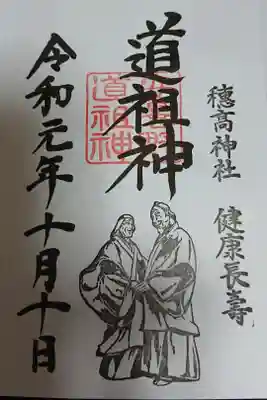 穂高神社 健康長寿
道祖神
令和元年十月十日
道祖神